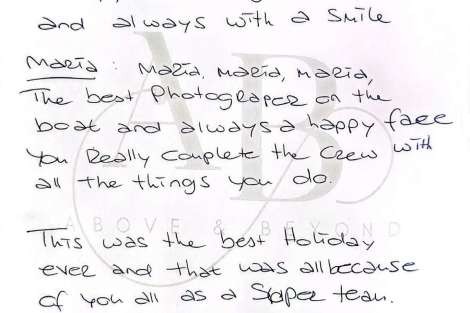 and always with a smile
Maria: Maria, Maria, Maria,
The best Photograper on the
boat and always a happy face
You Really Complete the Crew with
all the things you do.
ABOVE & BEYOND
This was the best Holiday
ever and that was all because
of you all as a Super team.